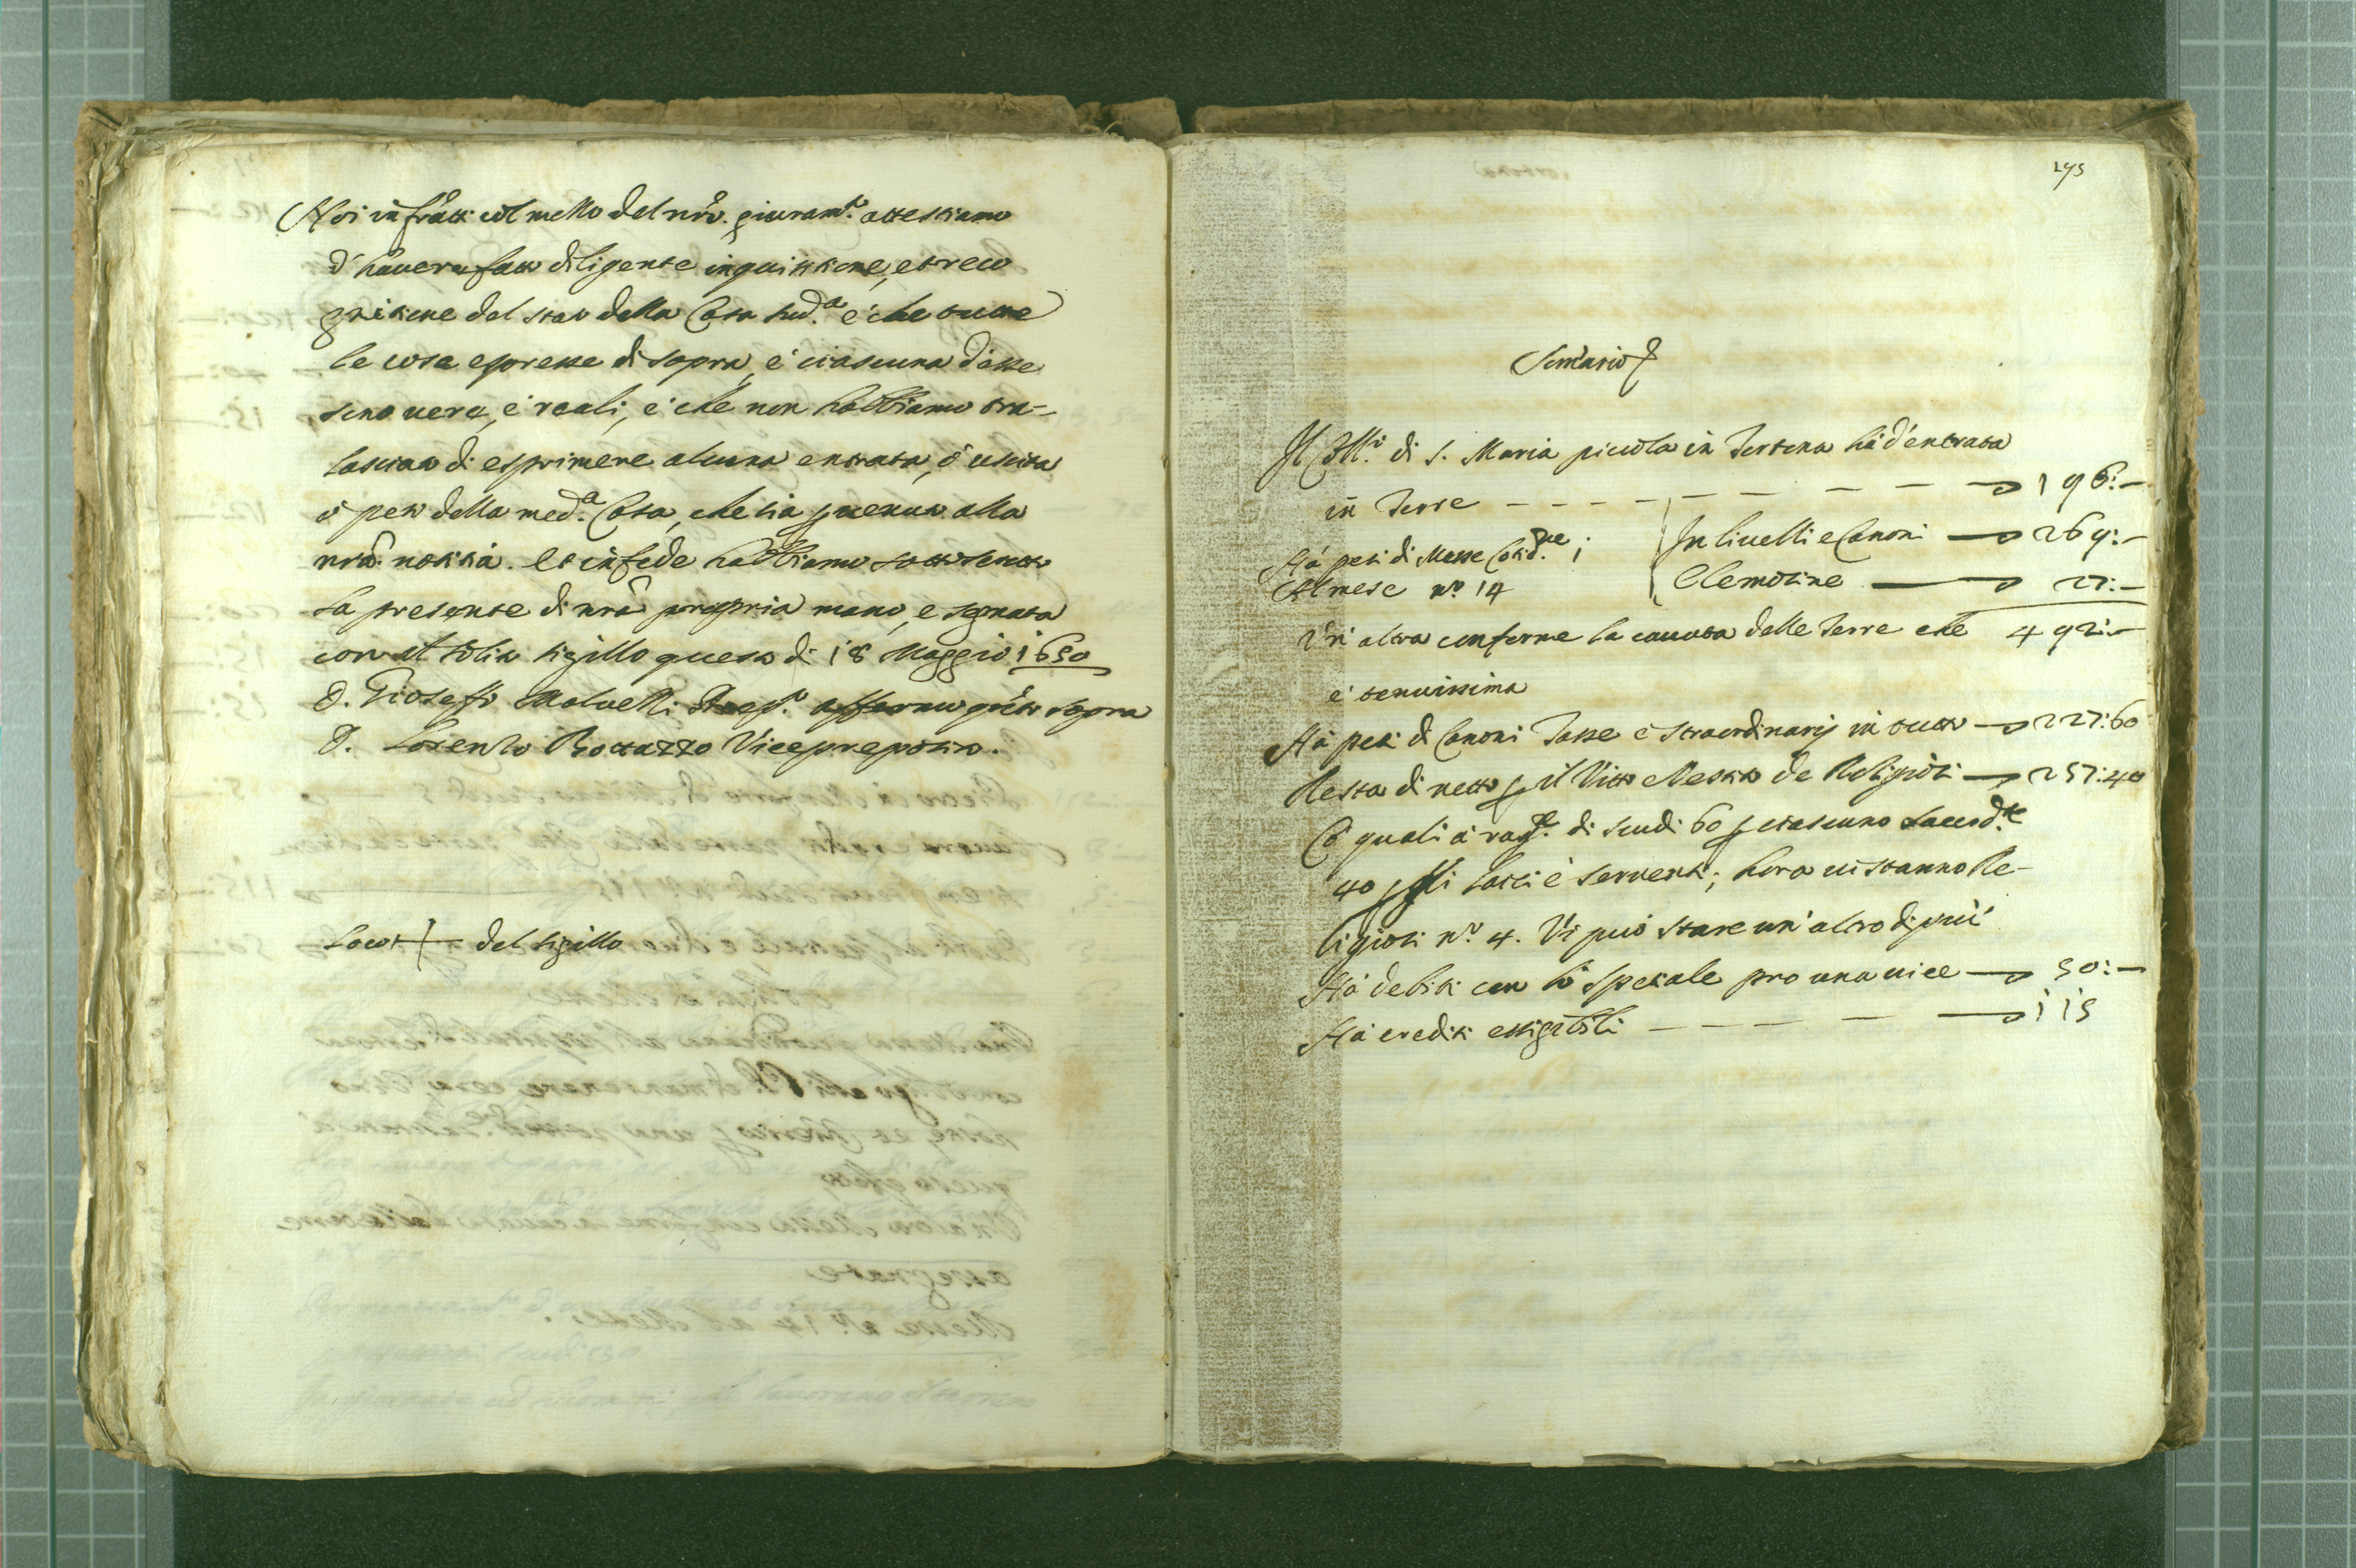 Noi infrãtti col mezzo del nrõ. giuram.to attestiamo
d'hauere fatto diligente inquisitione, et reco
gnitione del stato della Casa sud.a é che tutte
le cose espresse di sopra, é ciascuna d'esse
sono uere, é reali, é che non habbiamo tra-
lasciato di esprimere alcuna entrata, ó uscita
ó peso della med.a Casa, che sia peruenuta alla
nrã notitia. Et in fede habbiamo sottoscritto
la presente di nrã propria mano, e segnata
con il solito sigillo questo di 18 Maggio 1650
D. Gioseffo Maluelli affermo qũto sopra
D. Lorenzo Bottazzo Vicepreposito.
Loco + del sigillo
195
Somario
Il Coll.o di S. Maria piccola in Tortona há d'entrata
in Terre - - - - - - - - 196:-
Há pesi di Messe Cotid.ne 1
Al mese n.o 14
In liuelli e Canoni — 269:-
Elemosine — 27:-
Un' altra conforme la cauata delle Terre che 492:-
é tenuissima
Há pesi di Canoni Tasse e straordinarij in tutto — 227:60
Resta di netto p il Vitto Vestito de Religiosi — 257:40
Cõ quali á rag.e di scudi 60 p ciascuno Sacerd.te
40 p li Laici é seruenti; hora ui stanno Re-
ligiosi n.o 4. Vi può stare un' altro di piú
Há debiti con lo spetiale pro una uice — 50:-
Há crediti essigibili - - - - - 115